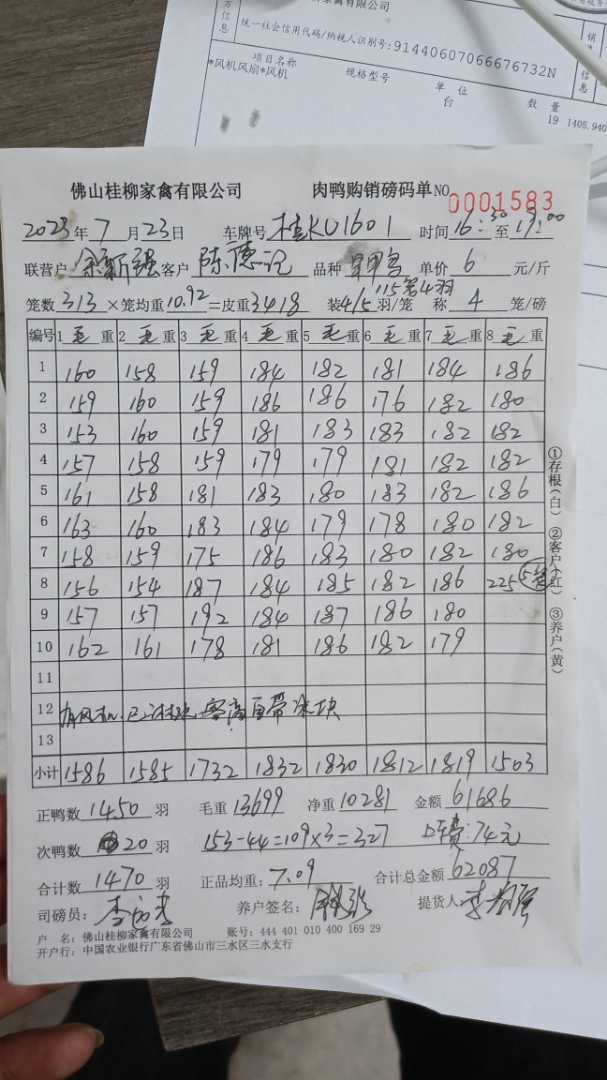 家禽有限公司
统一社会信用代码/纳税人识别号:91440607066676732N
项目名称 规格型号 单位 数量
*风机风扇*风机 台 19 1405.940
佛山桂柳家禽有限公司 肉鸭购销磅码单 NO 0001583
2023年7月23日 车牌号 桂KU1601 时间 16:30 至 19:00
联营户 余新强 客户 陈德记 品种 单价 6 元/斤
115第4羽
笼数 313 ×笼均重 10.92 =皮重 3418 装 4/5 羽/笼 称 4 笼/磅
编号 1 毛 重 2 毛 重 3 毛 重 4 毛 重 5 毛 重 6 毛 重 7 毛 重 8 毛 重
1 160 158 159 184 182 181 184 186
2 159 160 159 186 186 176 182 180
3 153 160 159 181 183 183 182 182
4 157 158 159 179 179 181 182 182
5 161 158 181 183 180 183 182 186
6 163 160 183 184 179 178 180 182
7 158 159 175 186 183 180 182 180
8 156 154 187 184 185 182 186 225 5笼
9 157 157 192 184 187 186 180
10 162 161 178 181 186 182 179
11
12 有风机
13
小计 1586 1585 1732 1832 1830 1812 1819 1503
①存根(白) ②客户(红) ③养户(黄)
正鸭数 1450 羽 毛重 13699 净重 10281 金额 61686
次鸭数 20 羽 153-44=109×3=327 费:74元
合计数 1470 羽 正品均重: 7.09 合计总金额 62087
司磅员: 养户签名: 提货人
户 名:佛山桂柳家禽有限公司 账号:444 401 010 400 169 29
开户行:中国农业银行广东省佛山市三水区三水支行